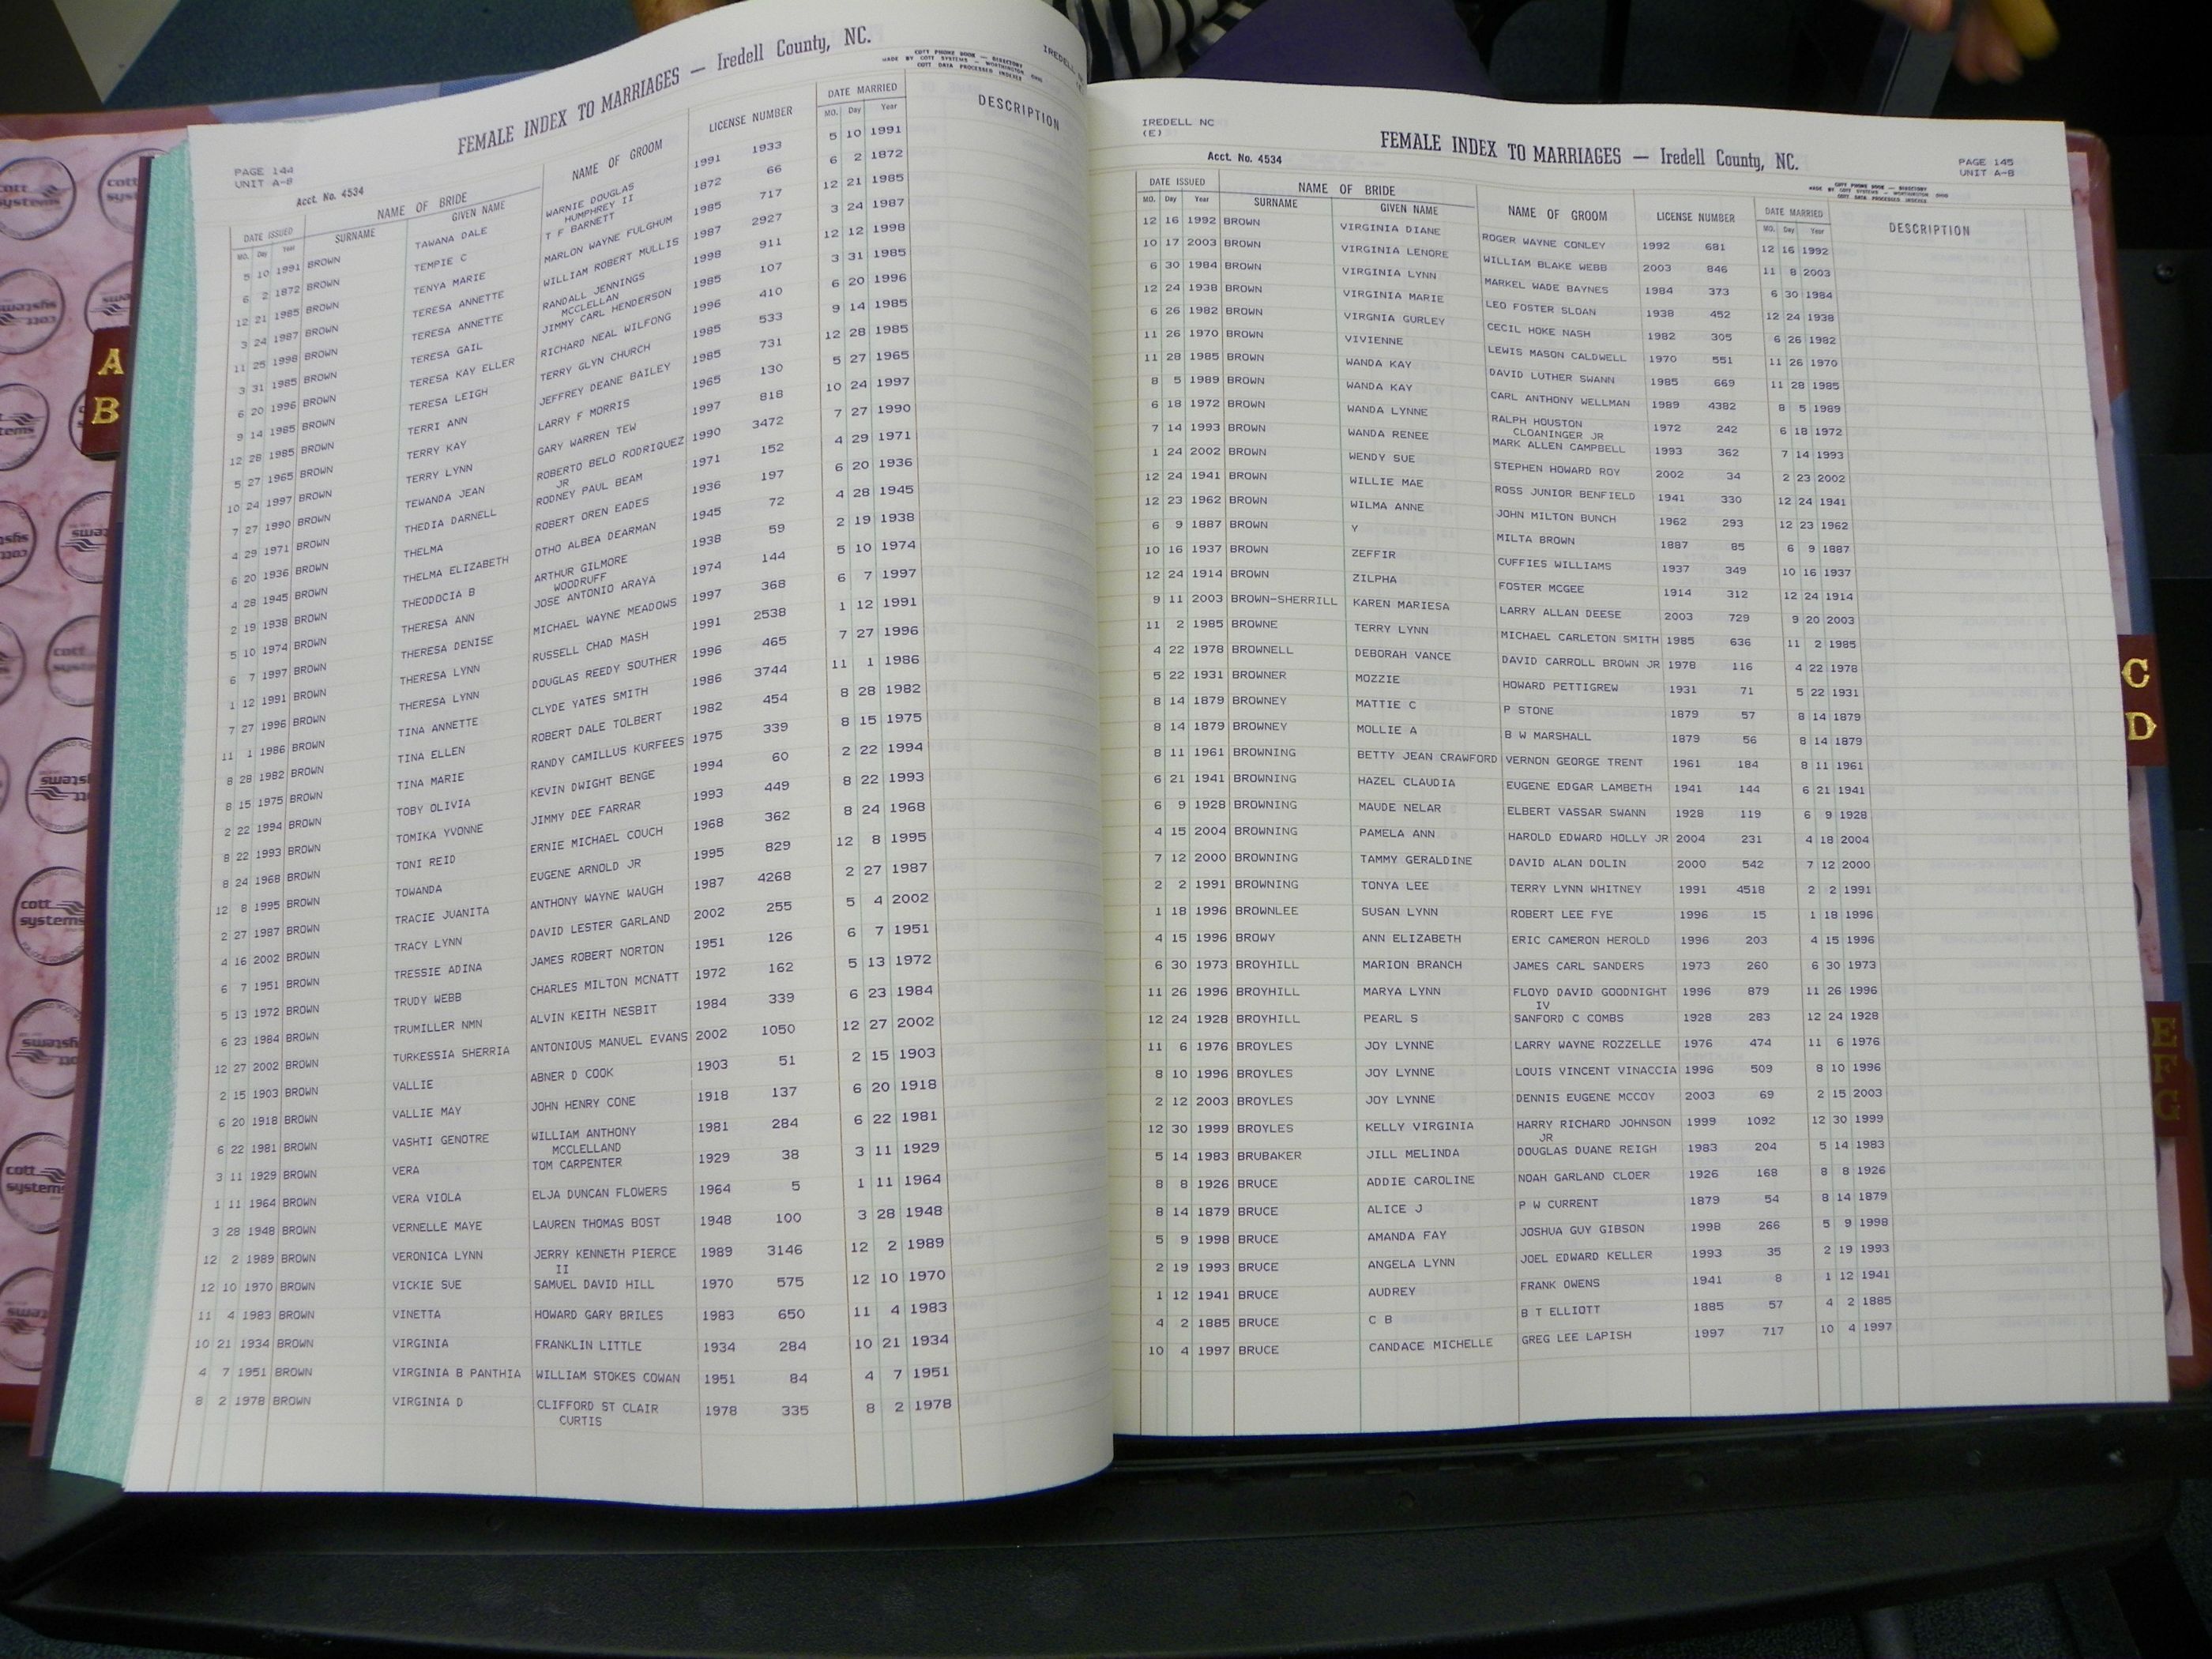 FEMALE INDEX TO MARRIAGES — Iredell County, NC.
MADE BY COTT SYSTEMS — WORTHINGTON OHIO
COTT PHONE BOOK — DIRECTORY
COTT DATA PROCESSED INDEXES
PAGE 144
UNIT A-B
Acct. No. 4534
DATE ISSUED NAME OF BRIDE NAME OF GROOM LICENSE NUMBER DATE MARRIED DESCRIPTION
MO. Day Year SURNAME GIVEN NAME MO. Day Year
5 10 1991 BROWN TAWANA DALE WARNIE DOUGLAS 1991 1933 5 10 1991
HUMPHREY II
6 2 1872 BROWN TEMPIE C T F BARNETT 1872 66 6 2 1872
12 21 1985 BROWN TENYA MARIE MARLON WAYNE FULGHUM 1985 717 12 21 1985
3 24 1987 BROWN TERESA ANNETTE WILLIAM ROBERT MULLIS 1987 2927 3 24 1987
11 25 1998 BROWN TERESA ANNETTE RANDALL JENNINGS 1998 911 12 12 1998
MCCLELLAN
3 31 1985 BROWN TERESA GAIL JIMMY CARL HENDERSON 1985 107 3 31 1985
6 20 1996 BROWN TERESA KAY ELLER RICHARD NEAL WILFONG 1996 410 6 20 1996
9 14 1985 BROWN TERESA LEIGH TERRY GLYN CHURCH 1985 533 9 14 1985
12 28 1985 BROWN TERRI ANN JEFFREY DEANE BAILEY 1985 731 12 28 1985
5 27 1965 BROWN TERRY KAY LARRY F MORRIS 1965 130 5 27 1965
10 24 1997 BROWN TERRY LYNN GARY WARREN TEW 1997 818 10 24 1997
7 27 1990 BROWN TEWANDA JEAN ROBERTO BELO RODRIQUEZ 1990 3472 7 27 1990
JR
4 29 1971 BROWN THEDIA DARNELL RODNEY PAUL BEAM 1971 152 4 29 1971
6 20 1936 BROWN THELMA ROBERT OREN EADES 1936 197 6 20 1936
4 28 1945 BROWN THELMA ELIZABETH OTHO ALBEA DEARMAN 1945 72 4 28 1945
2 19 1938 BROWN THEODOCIA B ARTHUR GILMORE 1938 59 2 19 1938
WOODRUFF
5 10 1974 BROWN THERESA ANN JOSE ANTONIO ARAYA 1974 144 5 10 1974
6 7 1997 BROWN THERESA DENISE MICHAEL WAYNE MEADOWS 1997 368 6 7 1997
1 12 1991 BROWN THERESA LYNN RUSSELL CHAD MASH 1991 2538 1 12 1991
7 27 1996 BROWN THERESA LYNN DOUGLAS REEDY SOUTHER 1996 465 7 27 1996
11 1 1986 BROWN TINA ANNETTE CLYDE YATES SMITH 1986 3744 11 1 1986
8 28 1982 BROWN TINA ELLEN ROBERT DALE TOLBERT 1982 454 8 28 1982
8 15 1975 BROWN TINA MARIE RANDY CAMILLUS KURFEES 1975 339 8 15 1975
2 22 1994 BROWN TOBY OLIVIA KEVIN DWIGHT BENGE 1994 60 2 22 1994
8 22 1993 BROWN TOMIKA YVONNE JIMMY DEE FARRAR 1993 449 8 22 1993
8 24 1968 BROWN TONI REID ERNIE MICHAEL COUCH 1968 362 8 24 1968
12 8 1995 BROWN TOWANDA EUGENE ARNOLD JR 1995 829 12 8 1995
2 27 1987 BROWN TRACIE JUANITA ANTHONY WAYNE WAUGH 1987 4268 2 27 1987
4 16 2002 BROWN TRACY LYNN DAVID LESTER GARLAND 2002 255 5 4 2002
6 7 1951 BROWN TRESSIE ADINA JAMES ROBERT NORTON 1951 126 6 7 1951
5 13 1972 BROWN TRUDY WEBB CHARLES MILTON MCNATT 1972 162 5 13 1972
6 23 1984 BROWN TRUMILLER NMN ALVIN KEITH NESBIT 1984 339 6 23 1984
12 27 2002 BROWN TURKESSIA SHERRIA ANTONIOUS MANUEL EVANS 2002 1050 12 27 2002
2 15 1903 BROWN VALLIE ABNER D COOK 1903 51 2 15 1903
6 20 1918 BROWN VALLIE MAY JOHN HENRY CONE 1918 137 6 20 1918
6 22 1981 BROWN VASHTI GENOTRE WILLIAM ANTHONY 1981 284 6 22 1981
MCCLELLAND
3 11 1929 BROWN VERA TOM CARPENTER 1929 38 3 11 1929
1 11 1964 BROWN VERA VIOLA ELJA DUNCAN FLOWERS 1964 5 1 11 1964
3 28 1948 BROWN VERNELLE MAYE LAUREN THOMAS BOST 1948 100 3 28 1948
12 2 1989 BROWN VERONICA LYNN JERRY KENNETH PIERCE 1989 3146 12 2 1989
II
12 10 1970 BROWN VICKIE SUE SAMUEL DAVID HILL 1970 575 12 10 1970
11 4 1983 BROWN VINETTA HOWARD GARY BRILES 1983 650 11 4 1983
10 21 1934 BROWN VIRGINIA FRANKLIN LITTLE 1934 284 10 21 1934
4 7 1951 BROWN VIRGINIA B PANTHIA WILLIAM STOKES COWAN 1951 84 4 7 1951
8 2 1978 BROWN VIRGINIA D CLIFFORD ST CLAIR 1978 335 8 2 1978
CURTIS
IREDELL NC
(E)
FEMALE INDEX TO MARRIAGES — Iredell County, NC.
Acct. No. 4534
PAGE 145
UNIT A-B
MADE BY COTT SYSTEMS — WORTHINGTON OHIO
COTT PHONE BOOK — DIRECTORY
COTT DATA PROCESSED INDEXES
DATE ISSUED NAME OF BRIDE NAME OF GROOM LICENSE NUMBER DATE MARRIED DESCRIPTION
MO. Day Year SURNAME GIVEN NAME MO. Day Year
12 16 1992 BROWN VIRGINIA DIANE ROGER WAYNE CONLEY 1992 681 12 16 1992
10 17 2003 BROWN VIRGINIA LENORE WILLIAM BLAKE WEBB 2003 846 11 8 2003
6 30 1984 BROWN VIRGINIA LYNN MARKEL WADE BAYNES 1984 373 6 30 1984
12 24 1938 BROWN VIRGINIA MARIE LEO FOSTER SLOAN 1938 452 12 24 1938
6 26 1982 BROWN VIRGNIA GURLEY CECIL HOKE NASH 1982 305 6 26 1982
11 26 1970 BROWN VIVIENNE LEWIS MASON CALDWELL 1970 551 11 26 1970
11 28 1985 BROWN WANDA KAY DAVID LUTHER SWANN 1985 669 11 28 1985
8 5 1989 BROWN WANDA KAY CARL ANTHONY WELLMAN 1989 4382 8 5 1989
6 18 1972 BROWN WANDA LYNNE RALPH HOUSTON 1972 242 6 18 1972
CLOANINGER JR
7 14 1993 BROWN WANDA RENEE MARK ALLEN CAMPBELL 1993 362 7 14 1993
1 24 2002 BROWN WENDY SUE STEPHEN HOWARD ROY 2002 34 2 23 2002
12 24 1941 BROWN WILLIE MAE ROSS JUNIOR BENFIELD 1941 330 12 24 1941
12 23 1962 BROWN WILMA ANNE JOHN MILTON BUNCH 1962 293 12 23 1962
6 9 1887 BROWN Y MILTA BROWN 1887 85 6 9 1887
10 16 1937 BROWN ZEFFIR CUFFIES WILLIAMS 1937 349 10 16 1937
12 24 1914 BROWN ZILPHA FOSTER MCGEE 1914 312 12 24 1914
9 11 2003 BROWN-SHERRILL KAREN MARIESA LARRY ALLAN DEESE 2003 729 9 20 2003
11 2 1985 BROWNE TERRY LYNN MICHAEL CARLETON SMITH 1985 636 11 2 1985
4 22 1978 BROWNELL DEBORAH VANCE DAVID CARROLL BROWN JR 1978 116 4 22 1978
5 22 1931 BROWNER MOZZIE HOWARD PETTIGREW 1931 71 5 22 1931
8 14 1879 BROWNEY MATTIE C P STONE 1879 57 8 14 1879
8 14 1879 BROWNEY MOLLIE A B W MARSHALL 1879 56 8 14 1879
8 11 1961 BROWNING BETTY JEAN CRAWFORD VERNON GEORGE TRENT 1961 184 8 11 1961
6 21 1941 BROWNING HAZEL CLAUDIA EUGENE EDGAR LAMBETH 1941 144 6 21 1941
6 9 1928 BROWNING MAUDE NELAR ELBERT VASSAR SWANN 1928 119 6 9 1928
4 15 2004 BROWNING PAMELA ANN HAROLD EDWARD HOLLY JR 2004 231 4 18 2004
7 12 2000 BROWNING TAMMY GERALDINE DAVID ALAN DOLIN 2000 542 7 12 2000
2 2 1991 BROWNING TONYA LEE TERRY LYNN WHITNEY 1991 4518 2 2 1991
1 18 1996 BROWNLEE SUSAN LYNN ROBERT LEE FYE 1996 15 1 18 1996
4 15 1996 BROWY ANN ELIZABETH ERIC CAMERON HEROLD 1996 203 4 15 1996
6 30 1973 BROYHILL MARION BRANCH JAMES CARL SANDERS 1973 260 6 30 1973
11 26 1996 BROYHILL MARYA LYNN FLOYD DAVID GOODNIGHT 1996 879 11 26 1996
IV
12 24 1928 BROYHILL PEARL S SANFORD C COMBS 1928 283 12 24 1928
11 6 1976 BROYLES JOY LYNNE LARRY WAYNE ROZZELLE 1976 474 11 6 1976
8 10 1996 BROYLES JOY LYNNE LOUIS VINCENT VINACCIA 1996 509 8 10 1996
2 12 2003 BROYLES JOY LYNNE DENNIS EUGENE MCCOY 2003 69 2 15 2003
12 30 1999 BROYLES KELLY VIRGINIA HARRY RICHARD JOHNSON 1999 1092 12 30 1999
JR
5 14 1983 BRUBAKER JILL MELINDA DOUGLAS DUANE REIGH 1983 204 5 14 1983
8 8 1926 BRUCE ADDIE CAROLINE NOAH GARLAND CLOER 1926 168 8 8 1926
8 14 1879 BRUCE ALICE J P W CURRENT 1879 54 8 14 1879
5 9 1998 BRUCE AMANDA FAY JOSHUA GUY GIBSON 1998 266 5 9 1998
2 19 1993 BRUCE ANGELA LYNN JOEL EDWARD KELLER 1993 35 2 19 1993
1 12 1941 BRUCE AUDREY FRANK OWENS 1941 8 1 12 1941
4 2 1885 BRUCE C B B T ELLIOTT 1885 57 4 2 1885
10 4 1997 BRUCE CANDACE MICHELLE GREG LEE LAPISH 1997 717 10 4 1997
A
B
C
D
E
F
G
cott
systems